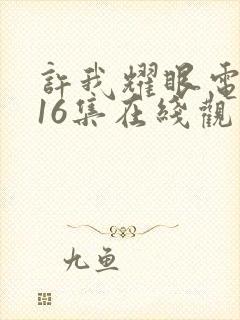 許我耀眼電
16集在綫觀
九鱼